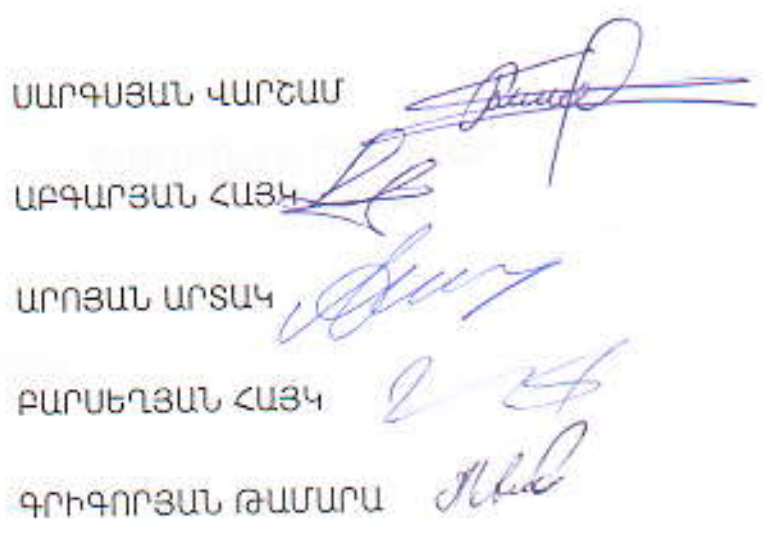 ՍԱՐԳՍՅԱՆ ՎԱՐՇԱՄ
ԱԲԳԱՐՅԱՆ ՀԱՅԿ
ԱՐՈՅԱՆ ԱՐՏԱԿ
ԲԱՐՍԵՂՅԱՆ ՀԱՅԿ
ԳՐԻԳՈՐՅԱՆ ԹԱՄԱՐԱ